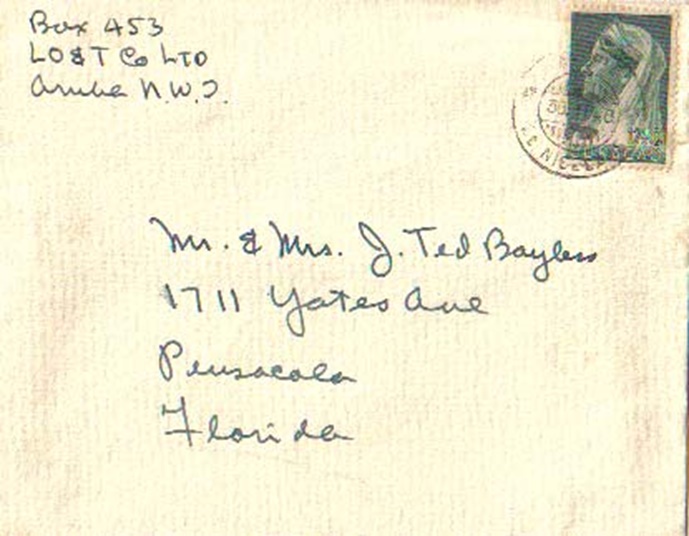 Box 453
LO&T Co LTD
Aruba N.W.I.
Mr. & Mrs. J. Ted Bayless
1711 Yates Ave
Pensacola
Florida